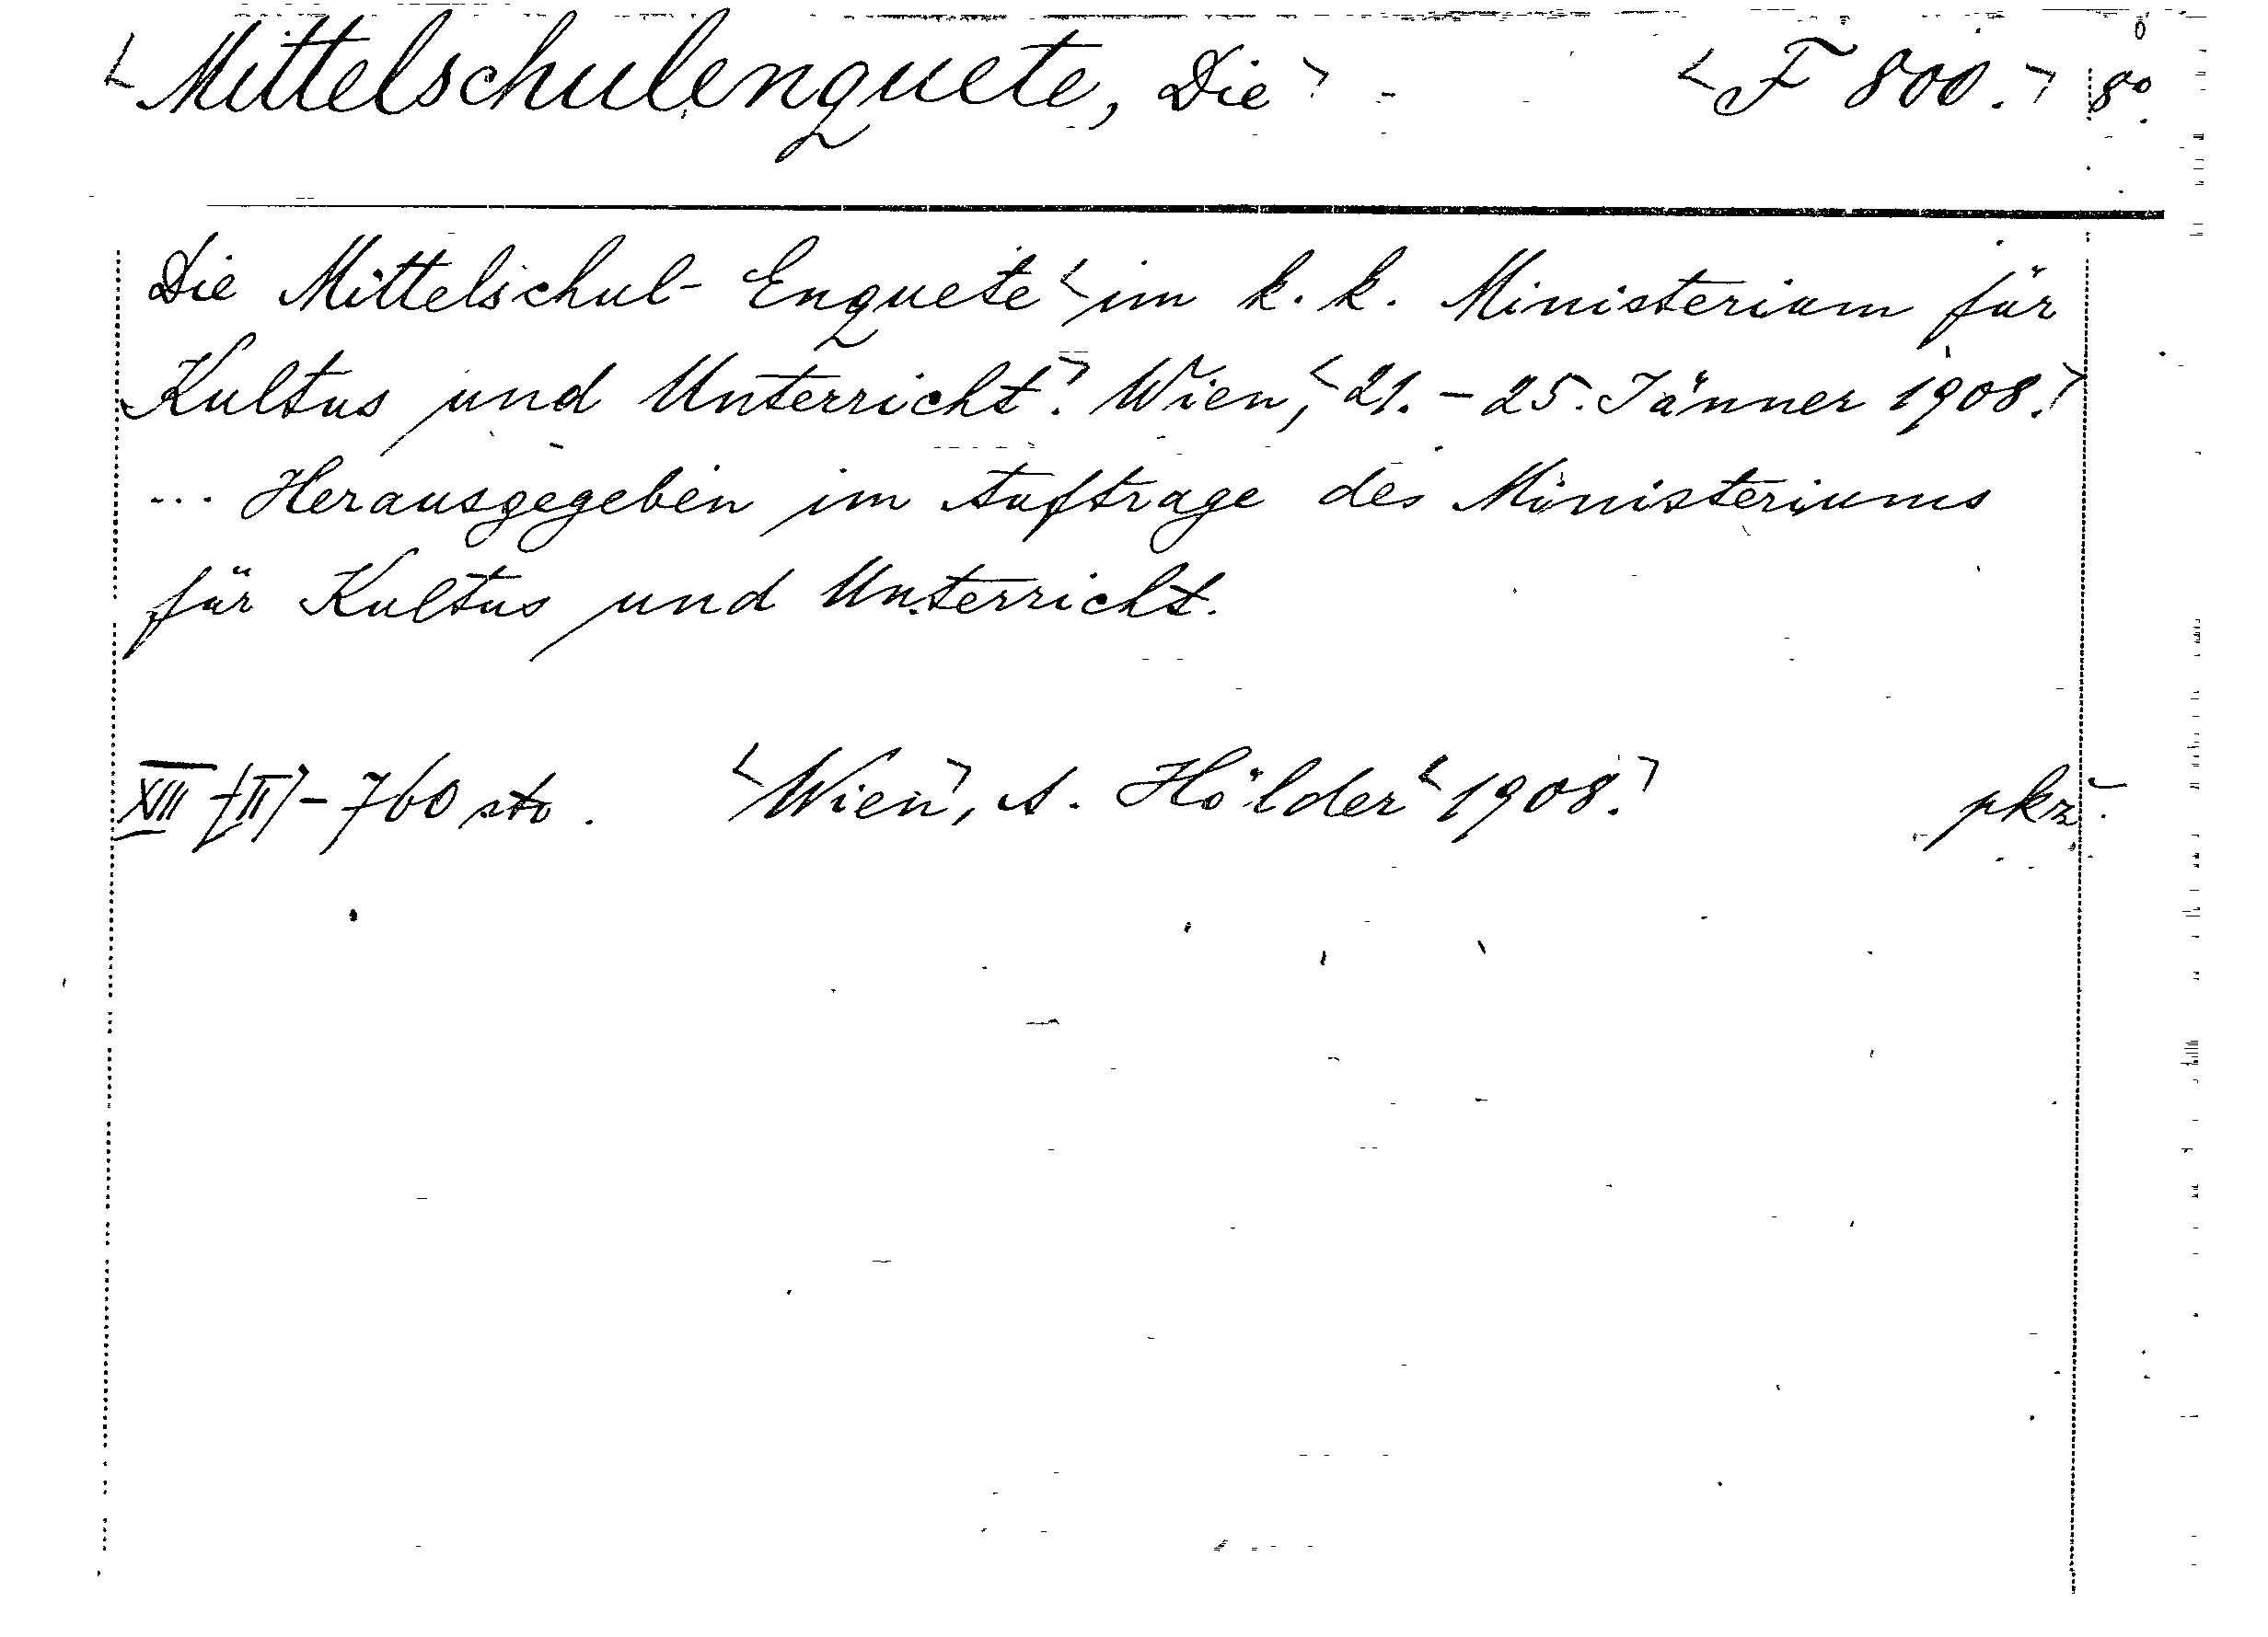 <Mittelschulenquete, Die> <F 800.> 8°
Die Mittelschul-Enquete <im k. k. Ministerium für
Kultus und Unterricht.> Wien, <21.-25. Jänner 1908.>
... Herausgegeben im Auftrage des Ministeriums
für Kultus und Unterricht.
XIII [II]-760 str. <Wien>, A. Hölder <1908.> pkž.